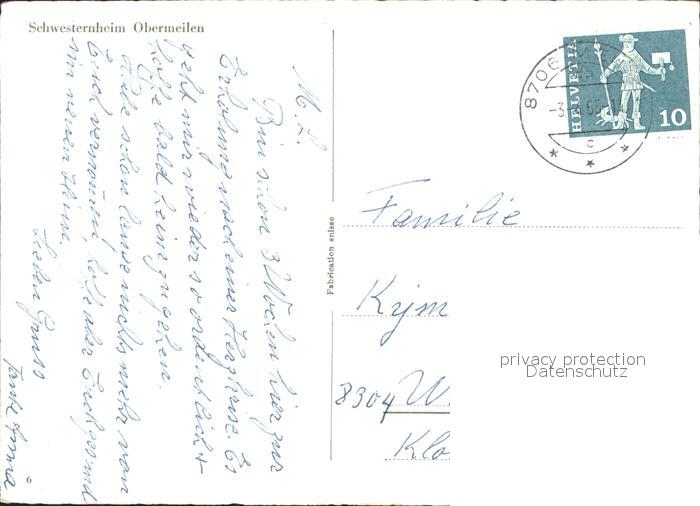 Schwesternheim Obermeilen
M. L.
Bin schon 3 Wochen hier zur
Erholung nach einer Herzkrise. Es
geht mir wieder so ordentlich +
hoffe bald heim zu gehen.
Habe schon lange nichts mehr von
Euch vernommen, hoffe aber Euch gesund
im neuen Heim.
Lieben Gruss
Tante Anna
6
Fabrication suisse
HELVETIA
10
8706
c
Familie
8304 W
Klo
privacy protection
Datenschutz